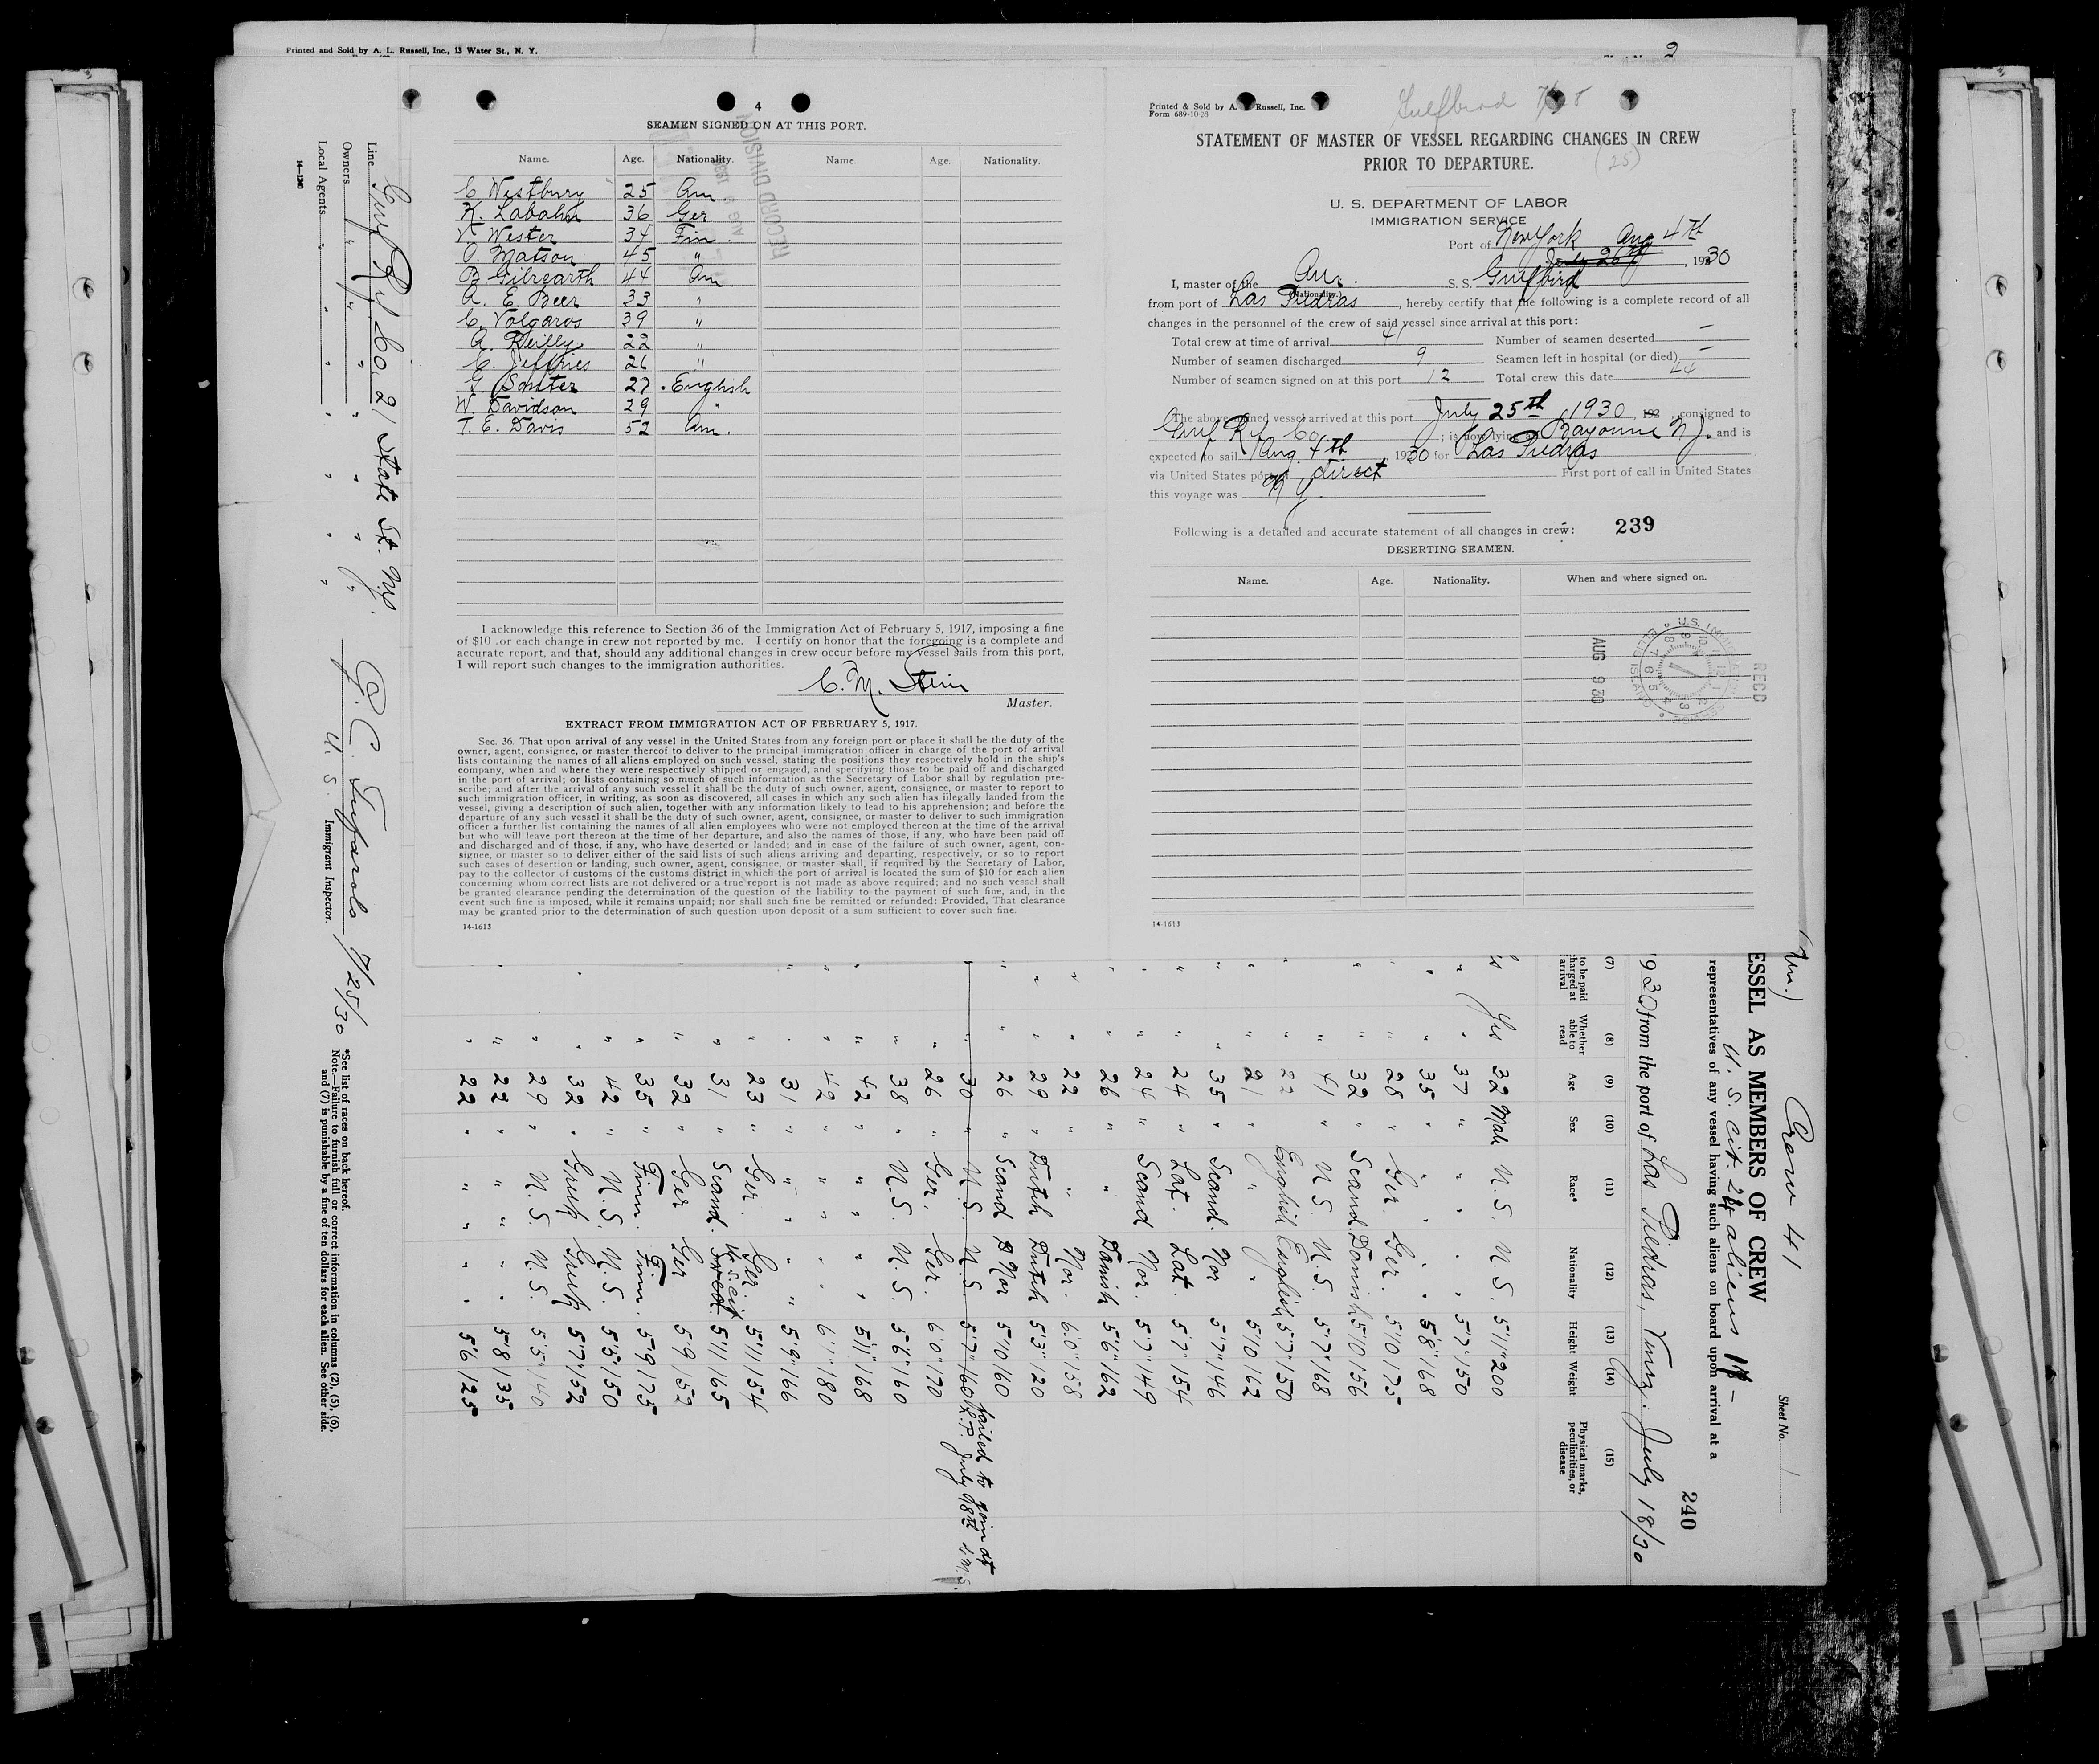 Printed and Sold by A. L. Russell, Inc., 13 Water St., N. Y.
2
4
SEAMEN SIGNED ON AT THIS PORT.
Name. Age. Nationality. Name. Age. Nationality.
C. Westbury 25 Am
K. Labahn 36 Ger
Wester 34 Fin.
O. Matson 45 "
B Gilreath 44 Am
A. E. Beer 33 "
C. Volgaros 39 "
A. Reilly 22 "
C. Jeffries 26 "
G. Souter 27 English
W. Davidson 29 "
T. E. Davis 52 Am.
RECORD DIVISION
I acknowledge this reference to Section 36 of the Immigration Act of February 5, 1917, imposing a fine
of $10 for each change in crew not reported by me. I certify on honor that the foregoing is a complete and
accurate report, and that, should any additional changes in crew occur before my vessel sails from this port,
I will report such changes to the immigration authorities.
C. M. Stein
Master.
EXTRACT FROM IMMIGRATION ACT OF FEBRUARY 5, 1917.
Sec. 36. That upon arrival of any vessel in the United States from any foreign port or place it shall be the duty of the
owner, agent, consignee, or master thereof to deliver to the principal immigration officer in charge of the port of arrival
lists containing the names of all aliens employed on such vessel, stating the positions they respectively hold in the ship's
company, when and where they were respectively shipped or engaged, and specifying those to be paid off and discharged
in the port of arrival; or lists containing so much of such information as the Secretary of Labor shall by regulation pre-
scribe; and after the arrival of any such vessel it shall be the duty of such owner, agent, consignee, or master to report to
such immigration officer, in writing, as soon as discovered, all cases in which any such alien has illegally landed from the
vessel, giving a description of such alien, together with any information likely to lead to his apprehension; and before the
departure of any such vessel it shall be the duty of such owner, agent, consignee, or master to deliver to such immigration
officer a further list containing the names of all alien employees who were not employed thereon at the time of the arrival
but who will leave port thereon at the time of her departure, and also the names of those, if any, who have been paid off
and discharged and of those, if any, who have deserted or landed; and in case of the failure of such owner, agent, con-
signee, or master so to deliver either of the said lists of such aliens arriving and departing, respectively, or so to report
such cases of desertion or landing, such owner, agent, consignee, or master shall, if required by the Secretary of Labor,
pay to the collector of customs of the customs district in which the port of arrival is located the sum of $10 for each alien
concerning whom correct lists are not delivered or a true report is not made as above required; and no such vessel shall
be granted clearance pending the determination of the question of the liability to the payment of such fine, and, in the
event such fine is imposed, while it remains unpaid; nor shall such fine be remitted or refunded: Provided, That clearance
may be granted prior to the determination of such question upon deposit of a sum sufficient to cover such fine.
14-1613
Printed & Sold by A. L. Russell, Inc.
Form 689-10-28
Gulfbird
STATEMENT OF MASTER OF VESSEL REGARDING CHANGES IN CREW
PRIOR TO DEPARTURE.
(25)
U. S. DEPARTMENT OF LABOR
IMMIGRATION SERVICE
Port of New York Aug 4th
July 26th, 1930
I, master of the Am. S. S. Gulfbird
(Nationality)
from port of Las Piedras, hereby certify that the following is a complete record of all
changes in the personnel of the crew of said vessel since arrival at this port:
Total crew at time of arrival 41 Number of seamen deserted —
Number of seamen discharged 9 Seamen left in hospital (or died) —
Number of seamen signed on at this port 12 Total crew this date 44
The above named vessel arrived at this port July 25th, 1930, 192 , consigned to
Gulf Rfg Co ; is now lying at Bayonne N J. and is
expected to sail Aug. 4th, 1930 for Las Piedras
via United States ports of direct First port of call in United States
this voyage was N Y.
Following is a detailed and accurate statement of all changes in crew: 239
DESERTING SEAMEN.
Name. Age. Nationality. When and where signed on.
RECD
U.S. IMMIGRATION SERVICE ELLIS ISLAND
AUG 9 30
14-1613
Line Gulf Rfg Co 21 State St. N.Y.
Owners " " " "
Local Agents " " " "
14-1240
U. S. Immigrant Inspector. 7/25/30
*See list of races on back hereof.
Note.—Failure to furnish full or correct information in columns (2), (5), (6),
and (7) is punishable by a fine of ten dollars for each alien. See other side.
(Am.) Crew 41 Sheet No. 1
ESSEL AS MEMBERS OF CREW
U. S. cit. 24 aliens 17 -
240
representatives of any vessel having such aliens on board upon arrival at a
1930 from the port of Las Piedras, Venz. July 18/30
(7) (8) (9) (10) (11) (12) (13) (14) (15)
to be paid charged at arrival Whether able to read Age Sex Race* Nationality Height Weight Physical marks, peculiarities, or disease
Yes 32 Male U. S. U. S. 5'11" 200
" 37 " " " 5'7" 150
" 35 " " " 5'8" 168
" 28 " Ger. Ger. 5'10 175
" 32 " Scand. Danish 5'10 156
" 41 " U. S. U. S. 5'7" 168
" 22 English English 5'7" 150
" 21 " " 5'10 162
" 35 " Scand. Nor 5'7" 146
" 24 " Lat. Lat. 5'7 154
" 24 " Scand Nor. 5'7" 149
" 26 " " Danish 5'6" 162
" 22 " " Nor. 6'0" 158
" 29 " Dutch Dutch 5'3" 120
" 26 " Scand Nor 5'10 160
" 30 " U. S. U. S. 5'7" 160 failed to join at L.P. July 18th
" 26 " Ger. Ger. 6'0" 170
" 38 " U. S. U. S. 5'6" 160
" 42 " " " 5'11" 168
" 42 " " " 6'1" 180
" 31 " " " 5'9" 166
" 23 " Ger. Ger. 5'11 154
" 31 " Scand. Swed. U.S. cit 5'11 165
" 32 " Ger Ger 5'9 152
" 35 " Finn. Finn. 5'9 175
" 42 " U. S. U. S. 5'5" 150
" 32 " Greek Greek 5'7 152
" 29 " U. S. U. S. 5'5" 140
" 22 " " " 5'8 135
" 22 " " " 5'6 125